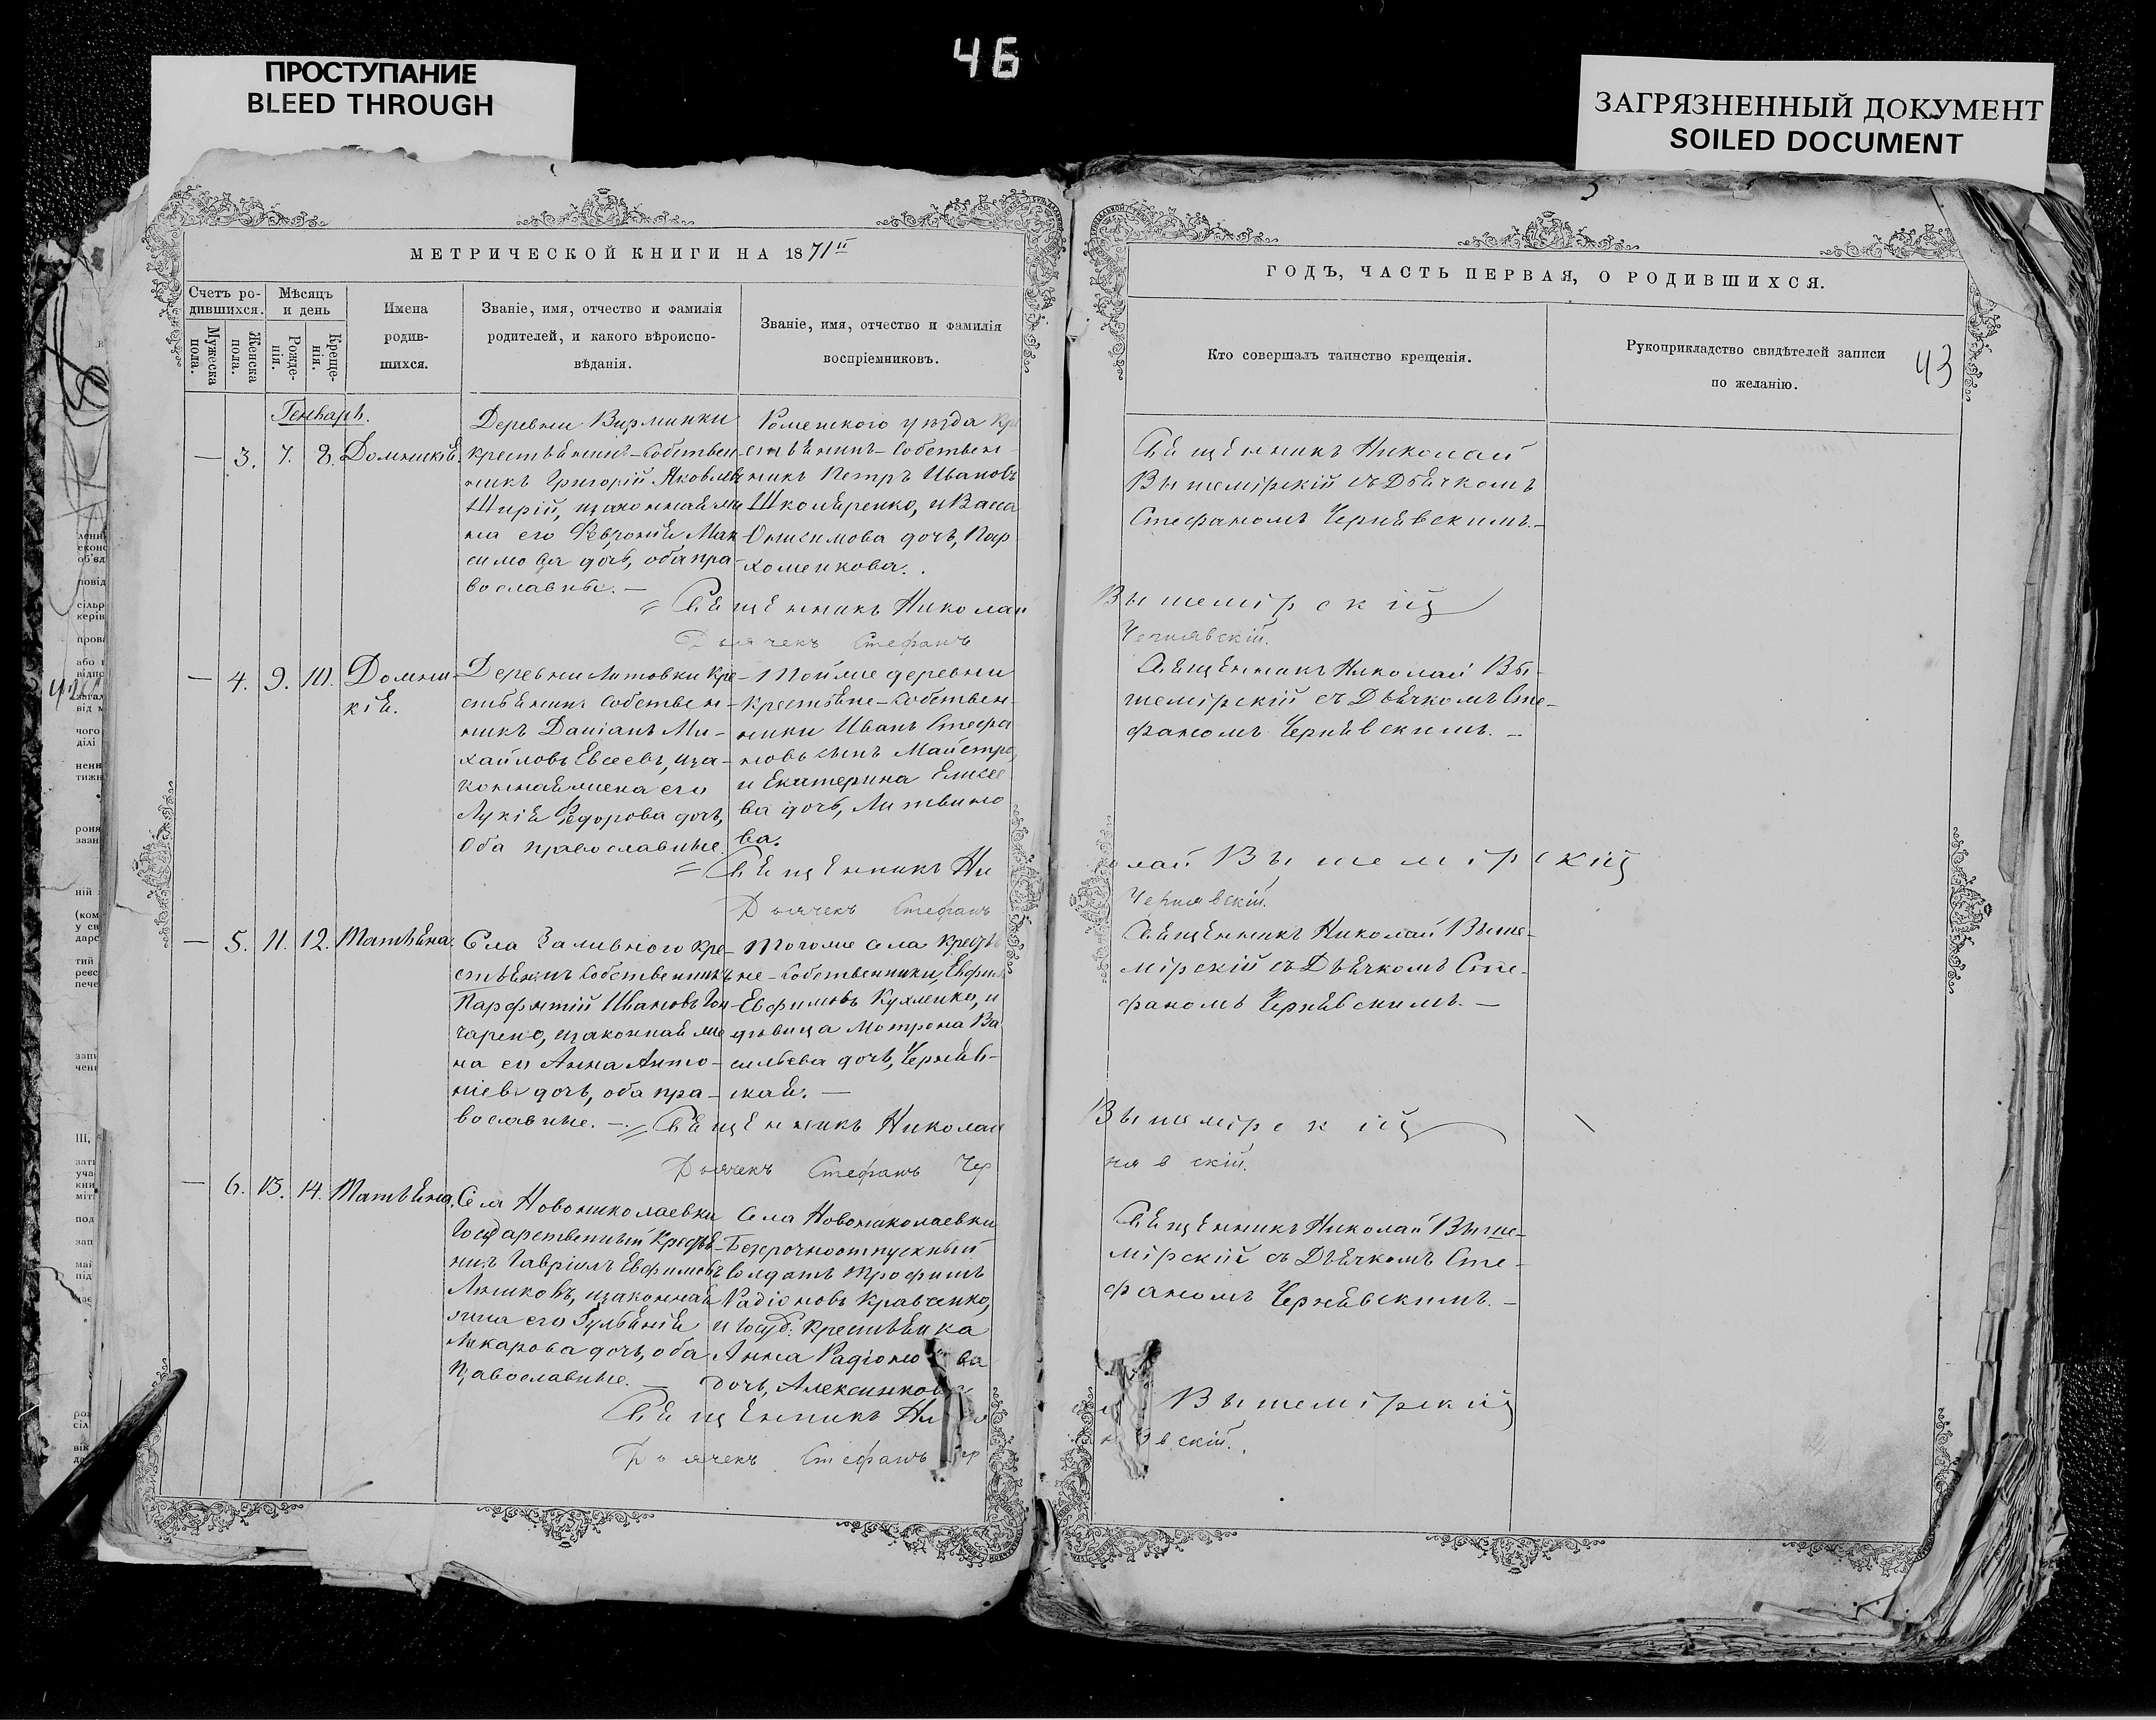 46
ПРОСТУПАНИЕ
BLEED THROUGH
ЗАГРЯЗНЕННЫЙ ДОКУМЕНТ
SOILED DOCUMENT
МЕТРИЧЕСКОЙ КНИГИ НА 1871
Счетъ ро-
дившихся.
Мужеска
пола.
Женска
пола.
Мѣсяцъ
и день
Рожде-
нія.
Креще-
нія.
Имена
родив-
шихся.
Званіе, имя, отчество и фамилія
родителей, и какого вѣроиспо-
вѣданія.
Званіе, имя, отчество и фамилія
воспріемниковъ.
Генварь.
— 3. 7. 8. Домникія.
Деревни
крестьянинъ-собствен-
никъ Григорій Яковлевъ
Ширій, и законная же-
на его Февронія Мак-
симова дочь, оба пра-
вославные. —
Роменского уѣзда Кр
естьянинъ-собствен-
никъ Петръ Ивановъ
Шкомаренко, и Васса
Онисимова дочь, Пар
хоменкова.
Священникъ Николай
Дьячекъ Стефанъ
— 4. 9. 10. Домни-
кія.
Деревни Литовки кре-
стьянинъ собствен-
никъ Даніилъ Ми-
хайловъ Евсеевъ, и за-
конная жена его
Лукія Федорова дочь,
оба православные.
Тойже деревни
крестьяне-собствен-
ники Иванъ Стефа
новъ сынъ Майстро,
и Екатерина Елисее
ва дочь, Литвино
ва.
Священникъ Ни
Дьячекъ Стефанъ
— 5. 11. 12. Татьяна.
Села Заливного кре-
стьянинъ собственникъ
Парфентій Ивановъ Гон-
чаренко, и законная же
на его Анна Анто-
ніева дочь, оба пра-
вославные. —
Тогоже села крестья
не-собственники,
Ефимовъ Кухленко, и
дѣвица Мотрона Ва
сильева дочь, Чернявс-
кая. —
Священникъ Николай
Дьячекъ Стефанъ Чер
— 6. 13. 14. Татьяна.
Села Новониколаевки
Государственный Крестья-
нинъ Гавріилъ Евфимовъ
и законная
жена его
Макарова дочь, оба
православные. —
Села Новониколаевки
Безсрочноотпускный
солдатъ Трофимъ
Радіоновъ Кравченко,
и Госуд: крестьянка
Анна Радіонова
дочь,
Священникъ Ни
Дьячекъ Стефанъ Чер
ГОДЪ, ЧАСТЬ ПЕРВАЯ, О РОДИВШИХСЯ.
Кто совершалъ таинство крещенія.
Рукоприкладство свидѣтелей записи
по желанію.
43
Священникъ Николай
Вышемірскій съ Дьячкомъ
Стефаномъ Чернявскимъ.—
Вышемірскій
Чернявскій.
Священникъ Николай Вы-
шемірскій съ Дьячкомъ Сте-
фаномъ Чернявскимъ. —
лай Вышемірскій
Чернявскій.
Священникъ Николай Выше-
мірскій съ Дьячкомъ Сте-
фаномъ Чернявскимъ. —
Вышемірскій
нявскій.
Священникъ Николай Выше-
мірскій съ Дьячкомъ Сте-
фаномъ Чернявскимъ. —
Вышемірскій
нявскій.